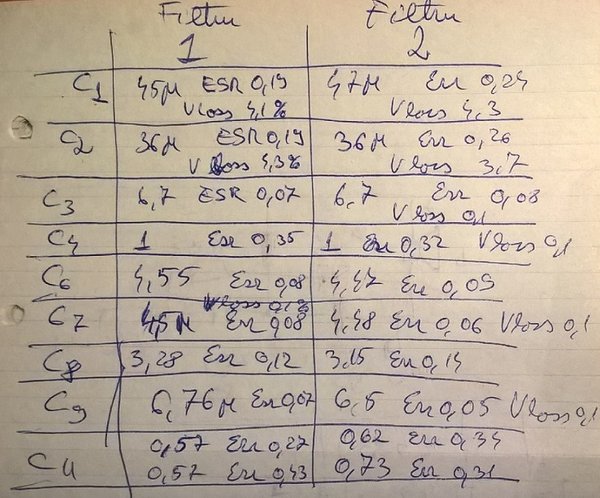 Filtru Filtru
1 2
C1 45µ ESR 0,19 47µ Esr 0,24
Vloss 4,1% Vloss 4,3
C2 36µ ESR 0,19 36µ Esr 0,26
Vloss 4,3% Vloss 3,7
C3 6,7 ESR 0,07 6,7 Esr 0,08
Vloss 0,1
C4 1 Esr 0,35 1 Esr 0,32 Vloss 0,1
C6 4,55 Esr 0,08 4,47 Esr 0,05
Vloss 0,1%
C7 Esr 0,08 4,48 Esr 0,06 Vloss 0,1
C8 3,28 Esr 0,12 3,15 Esr 0,14
C9 6,76µ Esr 0,07 6,5 Esr 0,05 Vloss 0,1
0,57 Esr 0,27 0,62 Esr 0,34
C11 0,57 Esr 0,43 0,73 Esr 0,31